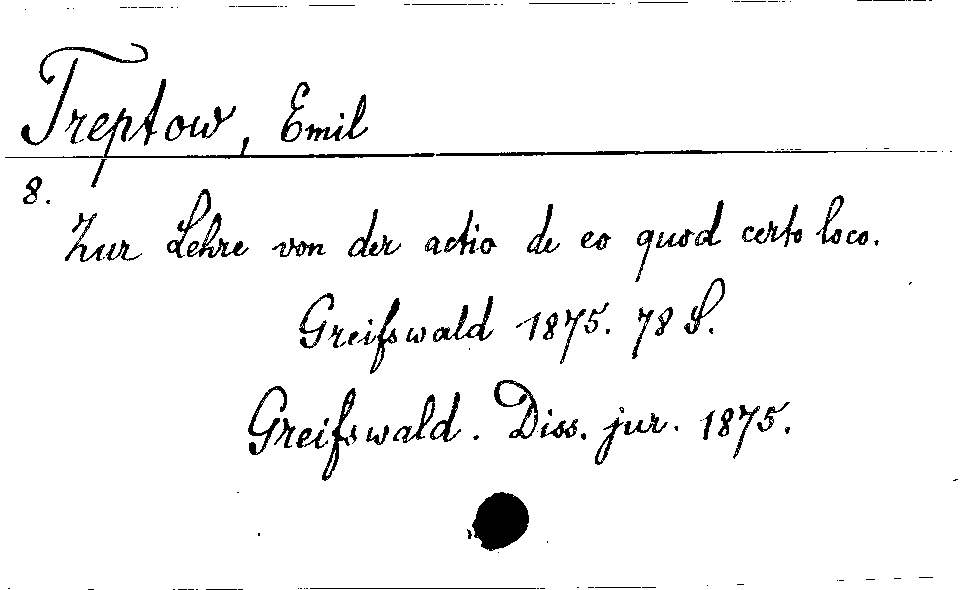 Treptow, Emil
8.
Zur Lehre von der actio de eo quod certo loco.
Greifswald 1875. 78 S.
Greifswald. Diss. jur. 1875.